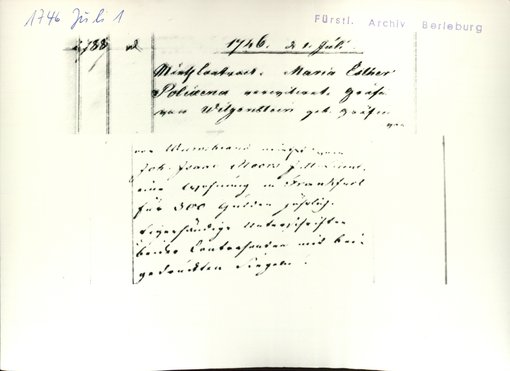 1746 Juli 1
Fürstl. Archiv Berleburg
1746. d. 1. Juli
Miethcontract. Maria Esther
Polixena verwittwet. Gräfin
von Witgenstein geb. Gräfin
von
von
Joh. Isaac Moors
eine Wohnung in Frankfurt
für 300 Gulden jährlich.
Eigenhändige Unterschriften
beider Contrahenten mit bei-
gedrückten Siegeln.